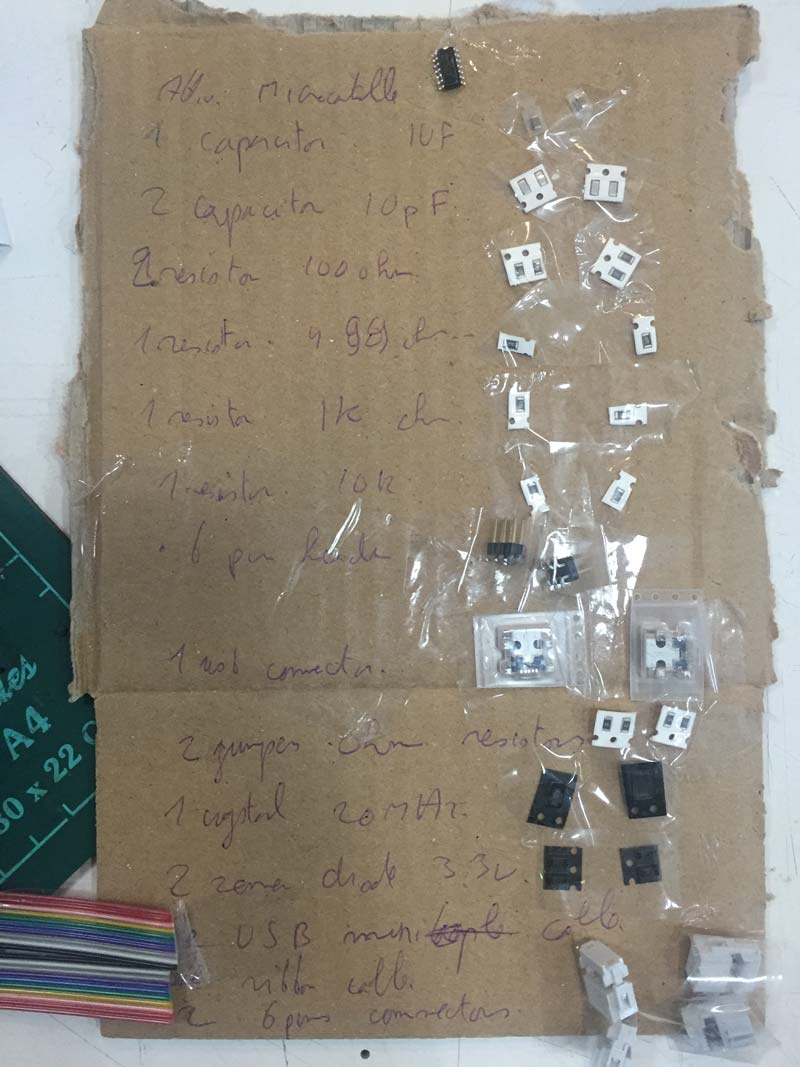 1 capacitor 1UF
2 capacitor 10pF
2 resistor 100 ohm
1 resistor 4.99 ohm
1 resistor 1k ohm
1 resistor 10k
6 pin
1 usb connector.
2 jumper Ohm resistors
1 crystal 20MHz
2 zener diode 3.3v.
USB mini cable
ribbon cable
2 6 pins connectors.
A4
30 x 22 C